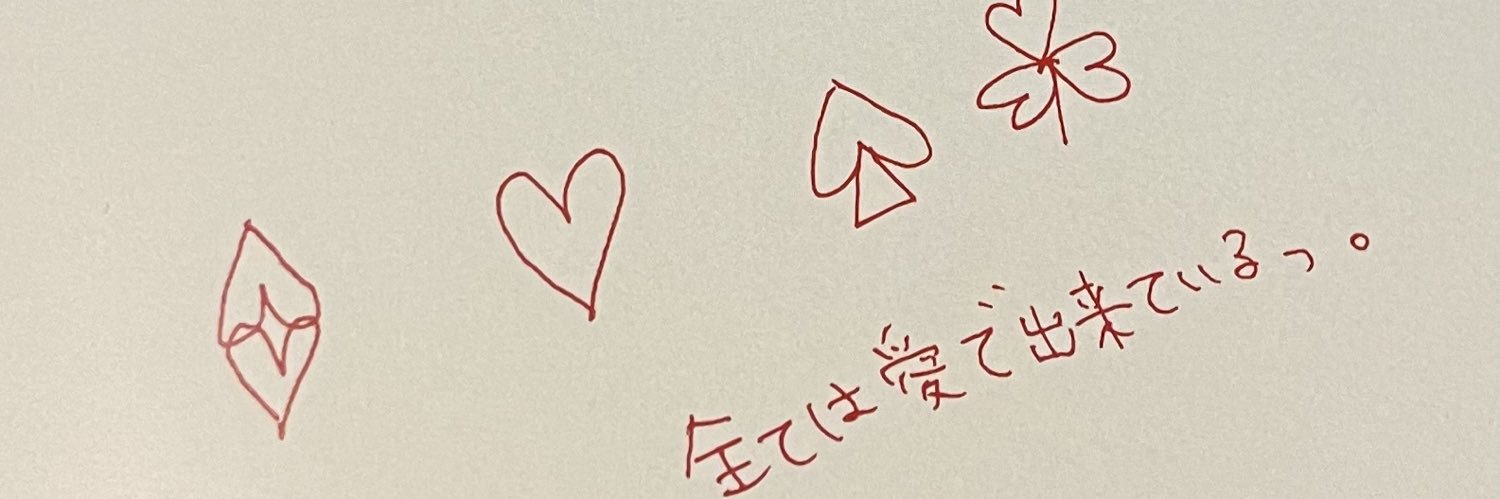 全ては愛で出来ているっ。